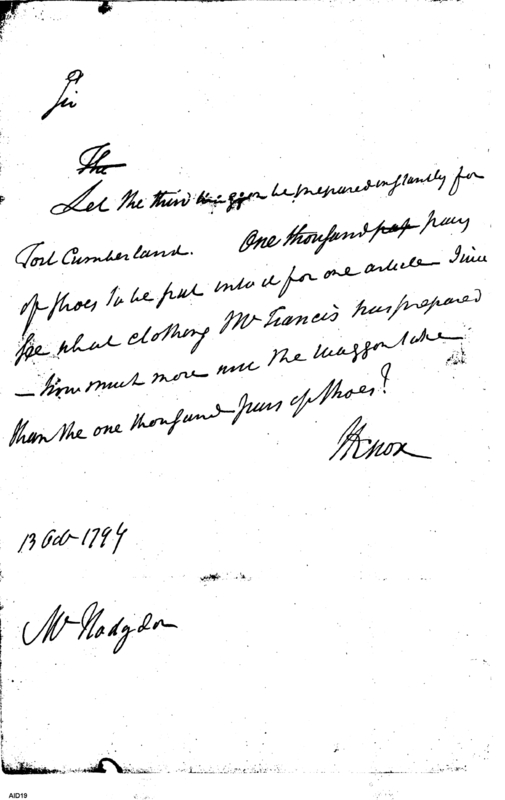 Sir
The
Let the third waggon be prepared instantly for
Fort Cumberland. One thousand pair pairs
of shoes to be put into it for one article I will
see what clothing Mr Francis has prepared
— how much more will the waggon take
than the one thousand pairs of shoes?
HKnox
13 Oct 1794
Mr Hodgdon
AID19